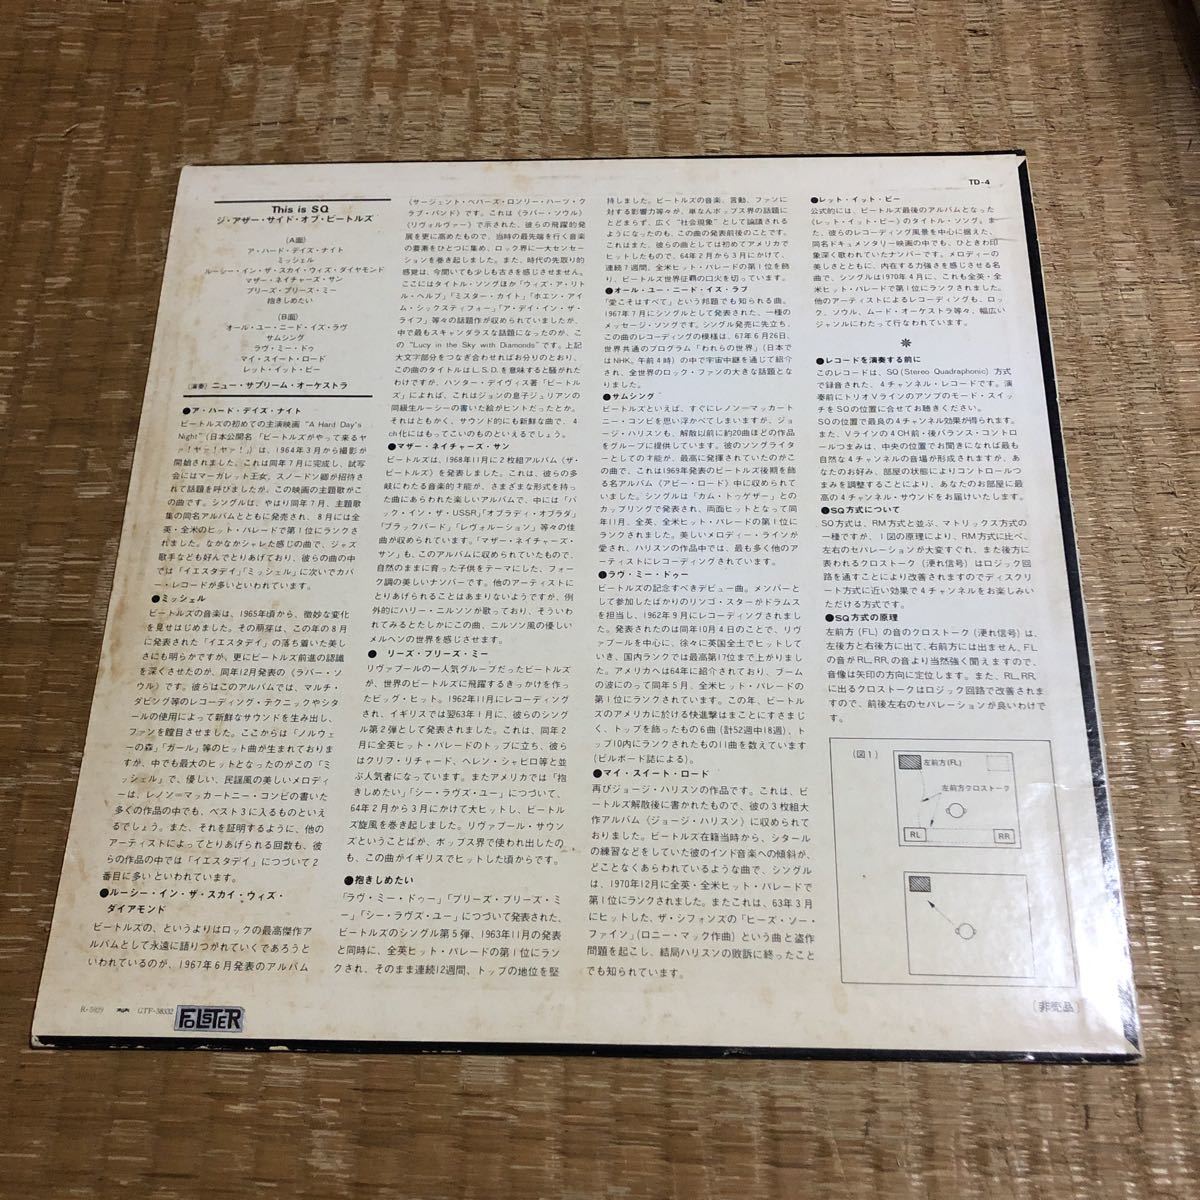 TD-4
This is SQ
ジ・アザー・サイド・オブ・ビートルズ
(A面)
ア・ハード・デイズ・ナイト
ミッシェル
ルーシー・イン・ザ・スカイ・ウィズ・ダイヤモンド
マザー・ネイチャーズ・サン
プリーズ・プリーズ・ミー
抱きしめたい
(B面)
オール・ユー・ニード・イズ・ラヴ
サムシング
ラヴ・ミー・ドゥ
マイ・スイート・ロード
レット・イット・ビー
(演奏) ニュー・サプリーム・オーケストラ
●ア・ハード・デイズ・ナイト
ビートルズの初めての主演映画 "A Hard Day's
Night" (日本公開名「ビートルズがやって来るヤ
ァ！ヤァ！ヤァ！」)は、1964年3月から撮影が
開始されました。これは同年7月に完成し、試写
会にはマーガレット王女、スノードン卿が招待さ
れて話題を呼びましたが、この映画の主題歌がこ
の曲です。シングルは、やはり同年7月、主題歌
集の同名アルバムとともに発売され、8月には全
英・全米のヒット・パレードの第1位にランクさ
れました。なかなかシャレた感じの曲で、ジャズ
歌手なども好んでとりあげており、彼らの曲の中
では「イエスタデイ」「ミッシェル」に次いでカバ
ー・レコードが多いといわれています。
●ミッシェル
ビートルズの音楽は、1965年頃から、微妙な変化
を見せはじめました。その萌芽は、この年の8月
に発表された「イエスタデイ」の落ち着いた美し
さにも明らかですが、更にビートルズ前進の認識
を深くさせたのが、同年12月発表の〈ラバー・ソ
ウル〉です。彼らはこのアルバムでは、マルチ・
ダビング等のレコーディング・テクニックやシタ
ールの使用によって新鮮なサウンドを生み出し、
ファンを瞠目させました。ここからは「ノルウェ
ーの森」「ガール」等のヒット曲が生まれておりま
すが、中でも最大のヒットとなったのがこの「ミ
ッシェル」で、優しい、民謡風の美しいメロディ
ーは、レノン＝マッカートニー・コンビの書いた
多くの作品の中でも、ベスト3に入るものといえ
るでしょう。また、それを証明するように、他の
アーティストによってとりあげられる回数も、彼
らの作品の中では「イエスタデイ」につづいて2
番目に多いといわれています。
●ルーシー・イン・ザ・スカイ・ウィズ・
ダイアモンド
ビートルズの、というよりはロックの最高傑作ア
ルバムとして永遠に語りつがれていくであろうと
いわれているのが、1967年6月発表のアルバム
〈サージェント・ペパーズ・ロンリー・ハーツ・ク
ラブ・バンド〉です。これは〈ラバー・ソウル〉
〈リヴォルヴァー〉で示された、彼らの飛躍的発
展を更に高めたもので、当時の最先端を行く音楽
の要素をひとつに集め、ロック界に一大センセー
ションを巻き起しました。また、時代の先取り的
感覚は、今聞いても少しも古さを感じさせません。
ここにはタイトル・ソングほか「ウィズ・ア・リト
ル・ヘルプ」「ミスター・カイト」「ホエン・アイ
ム・シックスティフォー」「ア・デイ・イン・ザ・
ライフ」等々の話題作が収められていましたが、
中で最もスキャンダラスな話題になったのが、こ
の"Lucy in the Sky with Diamonds"です。上記
大文字部分をつなぎ合わせればお分りのとおり、
この曲のタイトルはL.S.D.を意味すると騒がれた
わけですが、ハンター・デイヴィス著「ビートル
ズ」によれば、これはジョンの息子ジュリアンの
同級生ルーシーの書いた絵がヒントだったとか。
それはともかく、サウンド的にも新鮮な曲で、4
ch化にはもってこいのものといえるでしょう。
●マザー・ネイチャーズ・サン
ビートルズは、1968年11月に2枚組アルバム〈ザ・
ビートルズ〉を発表しました。これは、彼らの多
岐にわたる音楽的才能が、さまざまな形式を持っ
た曲にあらわれた楽しいアルバムで、中には「バ
ック・イン・ザ・USSR」「オブラディ・オブラダ」
「ブラックバード」「レヴォルーション」等々の佳
曲が収められています。「マザー・ネイチャーズ・
サン」も、このアルバムに収められていたもので、
自然のままに育った子供をテーマにした、フォー
ク調の美しいナンバーです。他のアーティストに
とりあげられることはあまりないようですが、例
外的にハリー・ニルソンが歌っており、そういわ
れてみるとたしかにこの曲、ニルソン風の優しい
メルヘンの世界を感じさせます。
● リーズ・プリーズ・ミー
リヴァプールの一人気グループだったビートルズ
が、世界のビートルズに飛躍するきっかけを作っ
たビッグ・ヒット。1962年11月にレコーディング
され、イギリスでは翌63年1月に、彼らのシング
ル第2弾として発表されました。これは、同年2
月に全英ヒット・パレードのトップに立ち、彼ら
はクリフ・リチャード、ヘレン・シャピロ等と並
ぶ人気者になっています。またアメリカでは「抱
きしめたい」「シー・ラヴズ・ユー」につづいて、
64年2月から3月にかけて大ヒットし、ビートル
ズ旋風を巻き起しました。リヴァプール・サウン
ズということばが、ポップス界で使われ出したの
も、この曲がイギリスでヒットした頃からです。
●抱きしめたい
「ラヴ・ミー・ドゥー」「プリーズ・プリーズ・ミ
ー」「シー・ラヴズ・ユー」につづいて発表された、
ビートルズのシングル第5弾、1963年11月の発表
と同時に、全英ヒット・パレードの第1位にラン
クされ、そのまま連続12週間、トップの地位を堅
持しました。ビートルズの音楽、言動、ファンに
対する影響力等々が、単なんポップス界の話題に
とどまらず、広く"社会現象"として論議される
ようになったのも、この曲の発表前後のことです。
これはまた、彼らの曲としては初めてアメリカで
ヒットしたもので、64年2月から3月にかけて、
連続7週間、全米ヒット・パレードの第1位を飾
り、ビートルズ世界征覇の口火を切っています。
●オール・ユー・ニード・イズ・ラブ
「愛こそはすべて」という邦題でも知られる曲。
1967年7月にシングルとして発表された、一種の
メッセージ・ソングです。シングル発売に先立ち、
この曲のレコーディングの模様は、67年6月26日、
世界共通のプログラム「われらの世界」(日本で
はNHK、午前4時)の中で宇宙中継を通じて紹介
され、全世界のロック・ファンの大きな話題とな
りました。
●サムシング
ビートルズといえば、すぐにレノン―マッカート
ニー・コンビを思い浮かべてしまいますが、ジョ
ージ・ハリスンも、解散以前に約20曲ほどの作品
をグループに提供しています。彼のソングライタ
ーとしての才能が、最高に発揮されていたのがこ
の曲で、これは1969年発表のビートルズ後期を飾
る名アルバム〈アビー・ロード〉中に収められて
いました。シングルは「カム・トゥゲザー」との
カップリングで発表され、両面ヒットとなって同
年11月、全英、全米ヒット・パレードの第1位に
ランクされました。美しいメロディー・ラインが
愛され、ハリスンの作品中では、最も多く他のア
ーティストにレコーディングされています。
●ラヴ・ミー・ドゥー
ビートルズの記念すべきデビュー曲。メンバーと
して参加したばかりのリンゴ・スターがドラムス
を担当し、1962年9月にレコーディングされまし
た。発表されたのは同年10月4日のことで、リヴ
ァプールを中心に、徐々に英国全土でヒットして
いき、国内ランクでは最高第17位まで上がりまし
た。アメリカへは64年に紹介されており、ブーム
の波にのって同年5月、全米ヒット・パレードの
第1位にランクされています。この年、ビートル
ズのアメリカに於ける快進撃はまことにすさまじ
く、トップを飾ったもの6曲(計52週中18週)、ト
ップ10内にランクされたもの11曲を数えています
(ビルボード誌による)。
●マイ・スイート・ロード
再びジョージ・ハリスンの作品です。これは、ビ
ートルズ解散後に書かれたもので、彼の3枚組大
作アルバム〈ジョージ・ハリスン〉に収められて
おりました。ビートルズ在籍当時から、シタール
の練習などをしていた彼のインド音楽への傾斜が、
どことなくあらわれているような曲で、シングル
は、1970年12月に全英・全米ヒット・パレードで
第1位にランクされました。またこれは、63年3月
にヒットした、ザ・シフォンズの「ヒーズ・ソー・
ファイン」(ロニー・マック作曲)という曲と盗作
問題を起こし、結局ハリスンの敗訴に終ったこと
でも知られています。
●レット・イット・ビー
公式的には、ビートルズ最後のアルバムとなった
〈レット・イット・ビー〉のタイトル・ソング。ま
た、彼らのレコーディング風景を中心に据えた、
同名ドキュメンタリー映画の中でも、ひときわ印
象深く歌われていたナンバーです。メロディーの
美しさとともに、内在する力強さを感じさせる名
曲で、シングルは1970年4月に、これも全英・全
米ヒット・パレードで第1位にランクされました。
他のアーティストによるレコーディングも、ロッ
ク、ソウル、ムード・オーケストラ等々、幅広い
ジャンルにわたって行なわれています。
＊
●レコードを演奏する前に
このレコードは、SQ(Stereo Quadraphonic)方式
で録音された、4チャンネル・レコードです。演
奏前にトリオVラインのアンプのモード・スイッ
チをSQの位置に合せてお聴きください。
SQの位置で最良の4チャンネル効果が得られます。
また、Vラインの4CH前・後バランス・コントロ
ールつまみは、中央の位置でお聞きになれば最も
自然な4チャンネルの音場が形成されますが、あ
なたのお好み、部屋の状態によりコントロールつ
まみを調整することにより、あなたのお部屋に最
高の4チャンネル・サウンドをお届けいたします。
●SQ方式について
SQ方式は、RM方式と並ぶ、マトリックス方式の
一種ですが、1図の原理により、RM方式に比べ、
左右のセパレーションが大変すぐれ、また後方に
表われるクロストーク(洩れ信号)はロジック回
路を通すことにより改善されますのでディスクリ
ート方式に近い効果で4チャンネルをお楽しみい
ただける方式です。
●SQ方式の原理
左前方(FL)の音のクロストーク(洩れ信号)は、
左後方と右後方に出て、右前方には出ません。FL
の音がRL、RRの音より当然強く聞えますので、
音像は矢印の方向に定位します。また、RL、RR、
に出るクロストークはロジック回路で改善されま
すので、前後左右のセパレーションが良いわけで
す。
(図1)
左前方(FL)
左前方クロストーク
RL
RR
(非売品)
R-5929
GTF-38332
FOLSTER